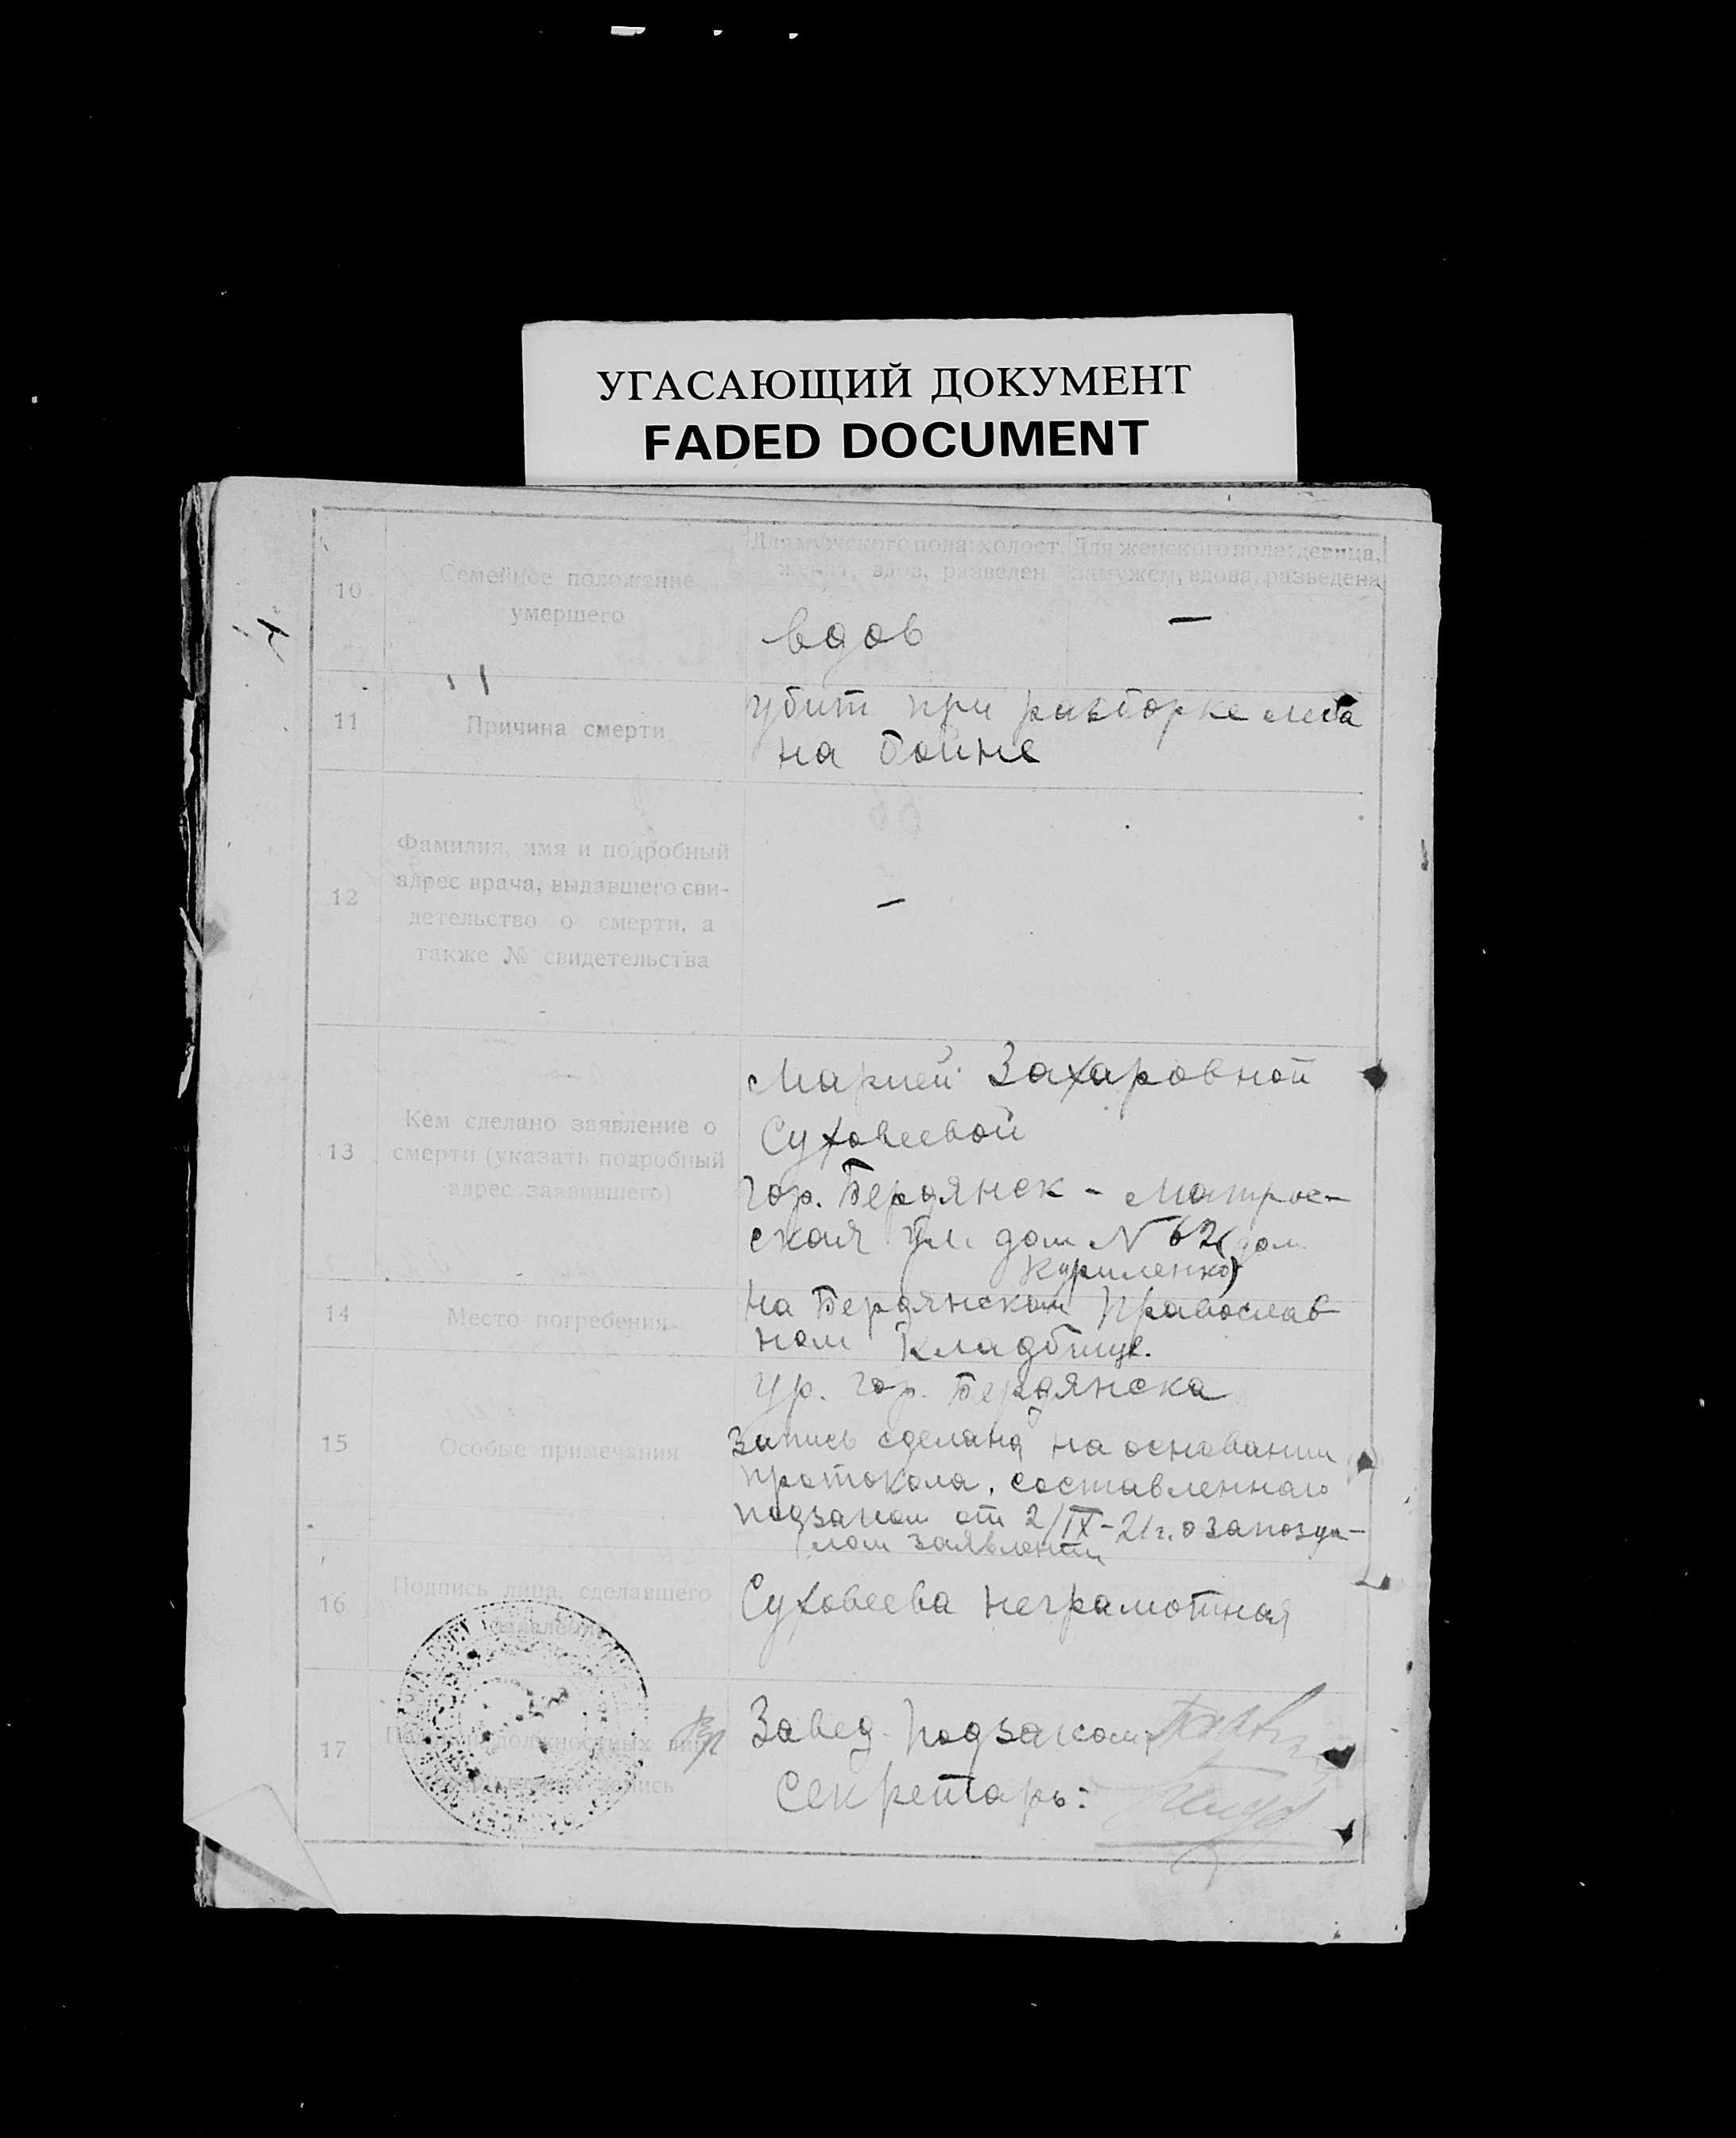 УГАСАЮЩИЙ ДОКУМЕНТ
FADED DOCUMENT
10
Семейное положение
умершего
Для мужского пола: холост,
женат, вдов, разведен
Для женского пола: девица,
замужем, вдова, разведена
вдов
—
11
Причина смерти
убит при разборке
на бойне
12
Фамилия, имя и подробный
адрес врача, выдавшего сви-
детельство о смерти, а
также № свидетельства
—
13
Кем сделано заявление о
смерти (указать подробный
адрес заявившего)
Марией Захаровной
Суховеевой
гор. Бердянск - Матрос-
ская ул. дом N 62 (дом
Куриленко)
14
Место погребения
на Бердянском Православ-
ном кладбище.
15
Особые примечания
Ур. гор. Бердянска
Запись сделана на основании
протокола, составленного
подзагсом от 2/IX-21 г. о запозда-
лом заявлении
16
Подпись лица, сделавшего
заявление
Суховеева неграмотная
17
должностных лиц,
запись
Завед. подзагсом:
Секретарь: